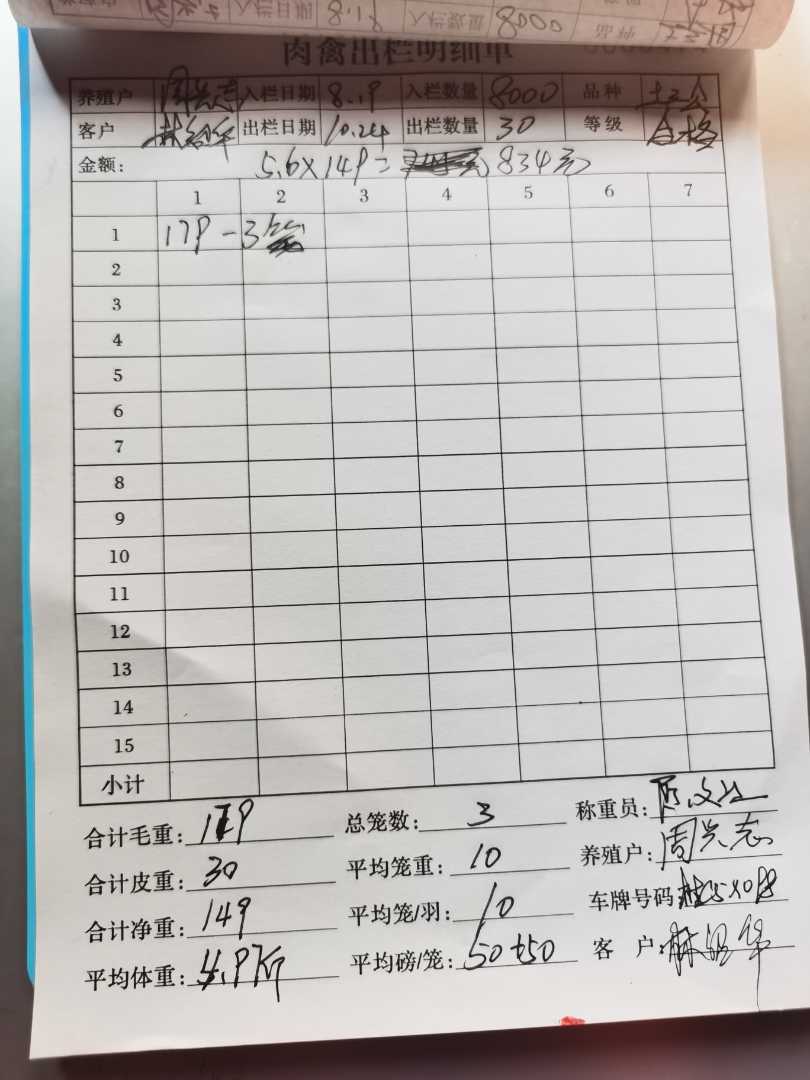 肉禽出栏明细单
养殖户 周兴志 入栏日期 8.19 入栏数量 8000 品种
客户 出栏日期 10.24 出栏数量 30 等级 合格
金额: 5.6×149= 834元
1 2 3 4 5 6 7
1 179-3笼
2
3
4
5
6
7
8
9
10
11
12
13
14
15
小计
合计毛重: 179 总笼数: 3 称重员:
合计皮重: 30 平均笼重: 10 养殖户: 周兴志
合计净重: 149 平均笼/羽: 10 车牌号码
平均体重: 4.9斤 平均磅/笼: 50 客 户: